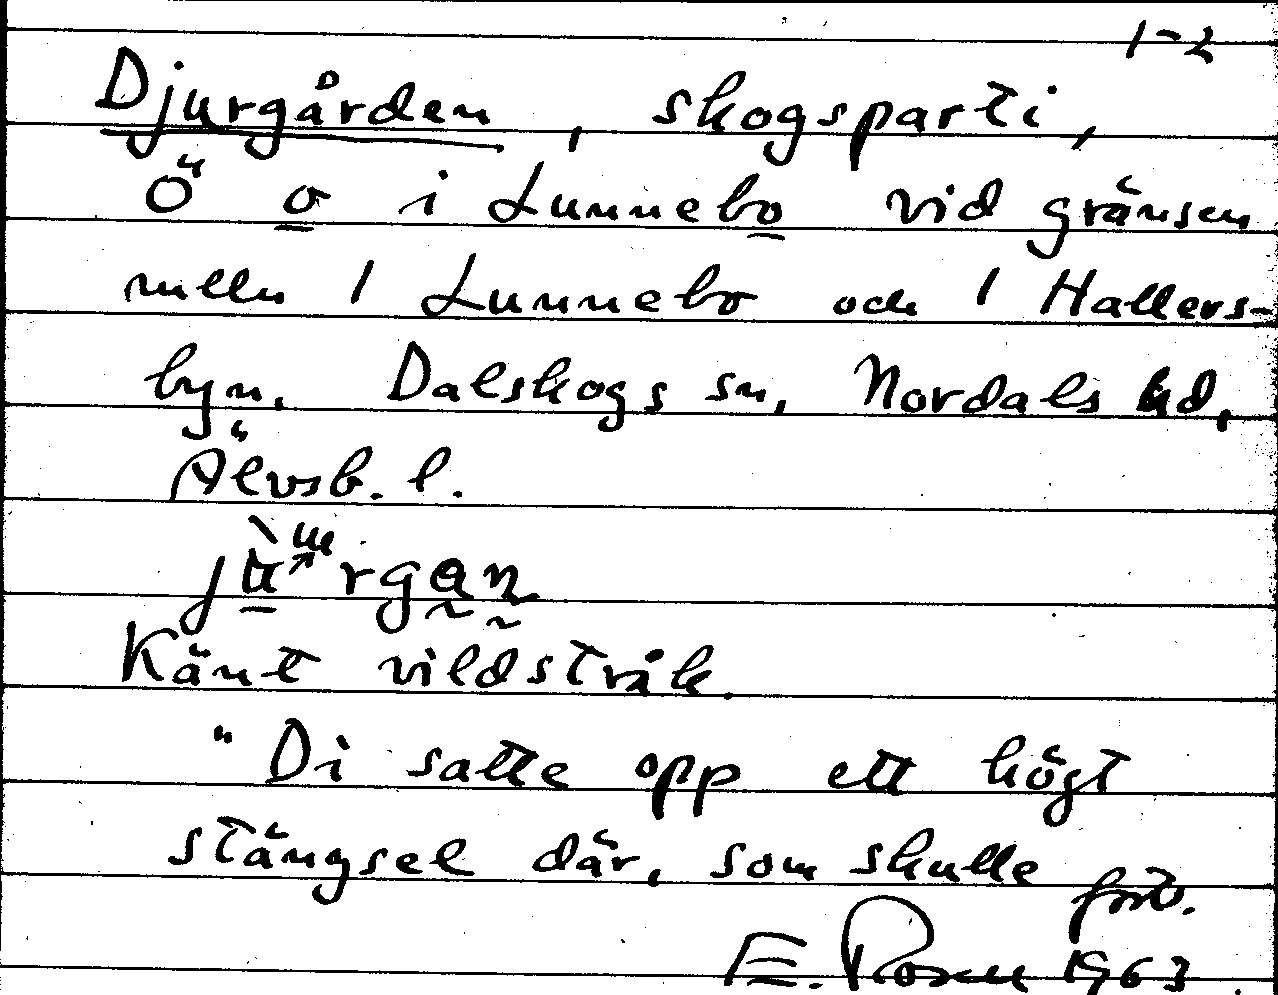 1-2
Djurgården, skogsparti,
Ö o i Lunnebo vid gränsen
mellan 1 Lunnebo och 1 Hallers-
byn. Dalskogs sn, Nordals hd,
Älvsb. l.
Känt vildstråk.
"Di satte opp ett högt
stängsel där, som skulle
fort.
E. Rosén 1963